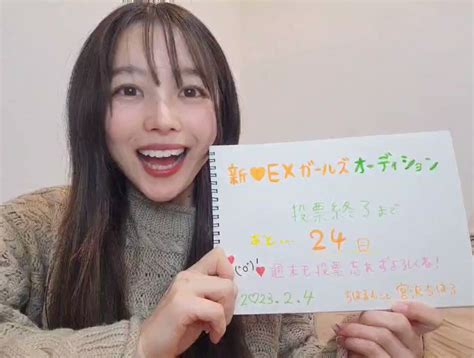 新♥EXガールズオーディション
投票終了まで
あと... 24日
('o')! ♥週末も投票忘れずよろしくね!
2023.2.4 ちはるんこと宮沢ちはる